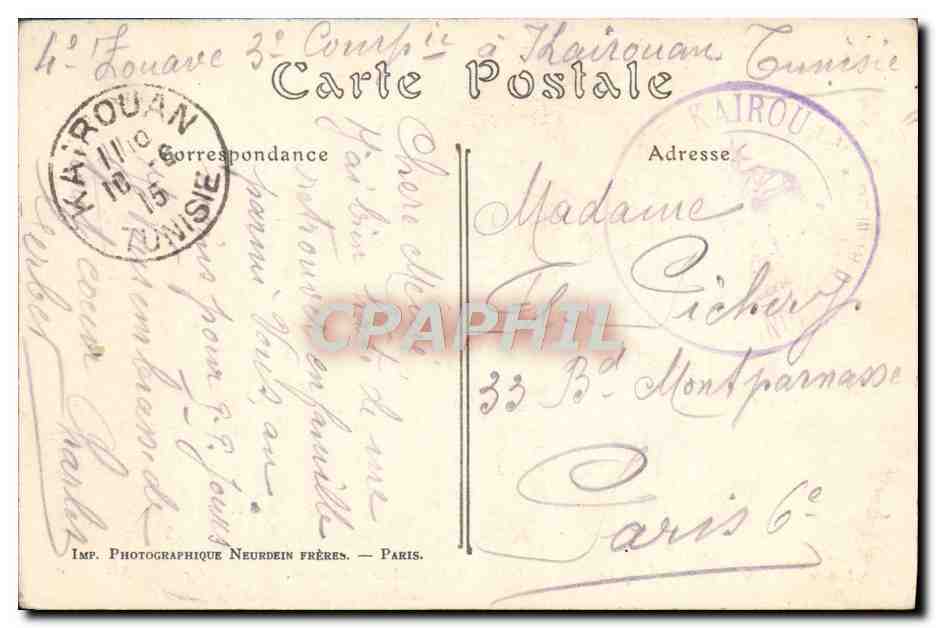 4e Zouave 3e Compie à Kairouan Tunisie
Carte Postale
KAIROUAN
11 10
16 - 6
15
TUNISIE
Correspondance
Adresse
KAIROU
Chere
J'ai bien de me
retrouver en famille
parmi Vous, au
pour q.q. Jours
coeur Charlot
Madame
Pichery
33 Bd Montparnasse
Paris 6e
CPAPHIL
Imp. Photographique Neurdein frères. — Paris.